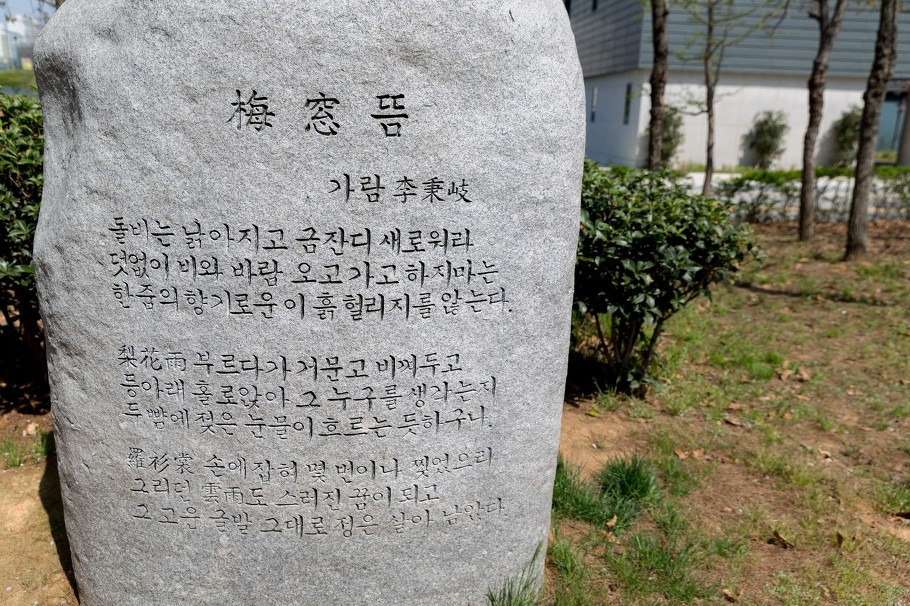 梅窓뜸
가람 李秉岐
돌비는 낡아지고 금잔디 새로워라
덧없이 비와 바람 오고가고 하지마는
한줌의 향기로운 이 흙 헐리지를 않는다.
梨花雨 부르다가 거문고 비껴두고
등아래 홀로앉아 그 누구를 생각는지
두 뺨에 젖은 눈물이 흐르는 듯하구나.
羅衫裳 손에 잡혀 몇 번이나 찢었으리
그리던 雲雨도 스러진 꿈이 되고
그 고은 글발 그대로 정은 살아 남았다.